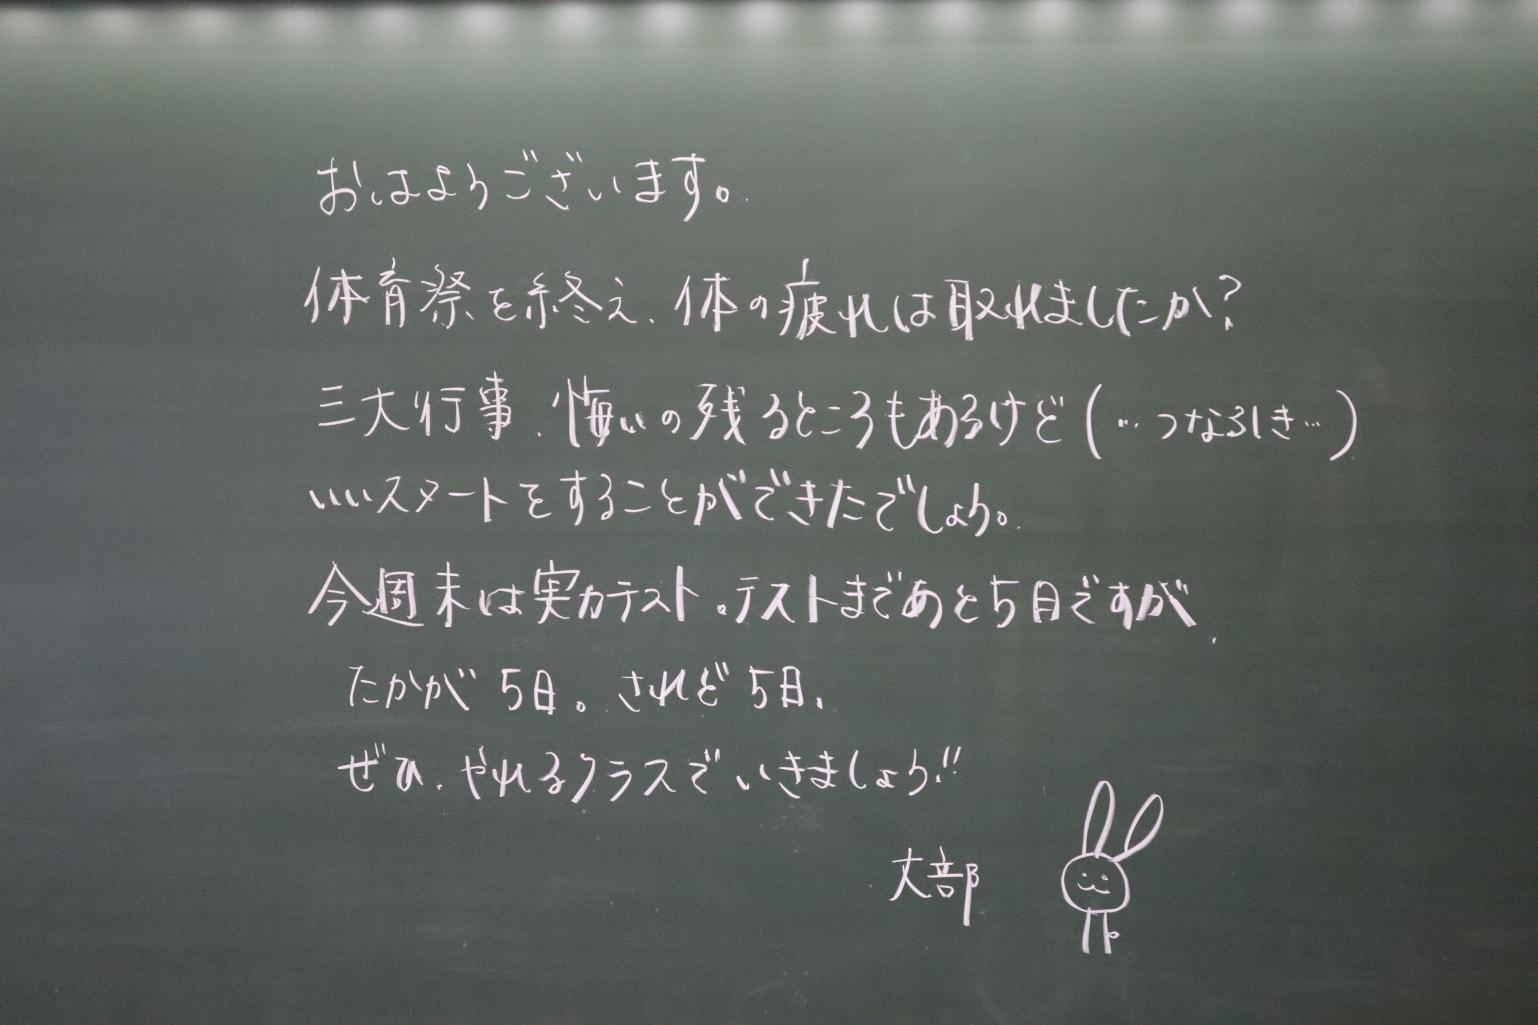 おはようございます。
体育祭を終え、体の疲れは取れましたか?
三大行事、悔いの残るところもあるけど(…つなひき…)
いいスタートをすることができたでしょう。
今週末は実力テスト。テストまであと5日ですが、
たかが5日。されど5日、
ぜひ、やれるクラスでいきましょう!!